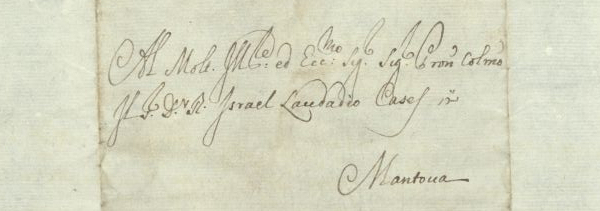 Al Molt. Ill.re ed Ecc.mo Sig.r Sig.r Pron Colmo
Il S. D.r R. Israel Laudadio Cases in
Mantoua